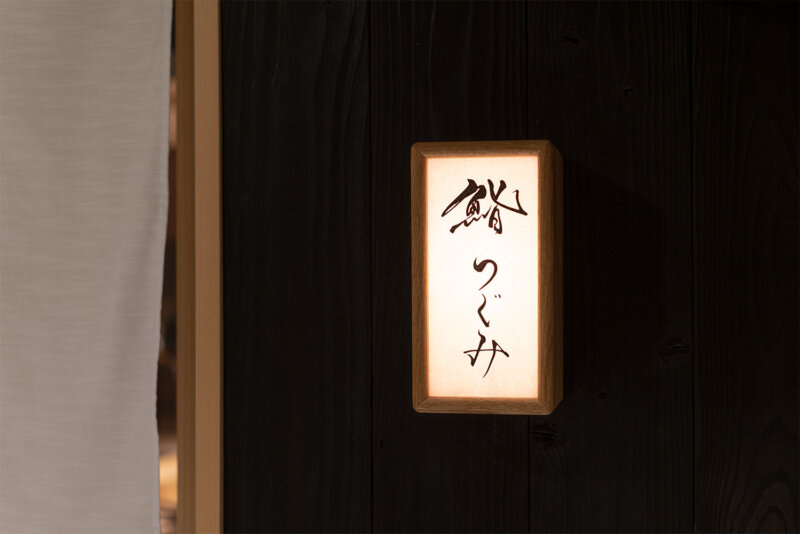 鮨
つぐみ